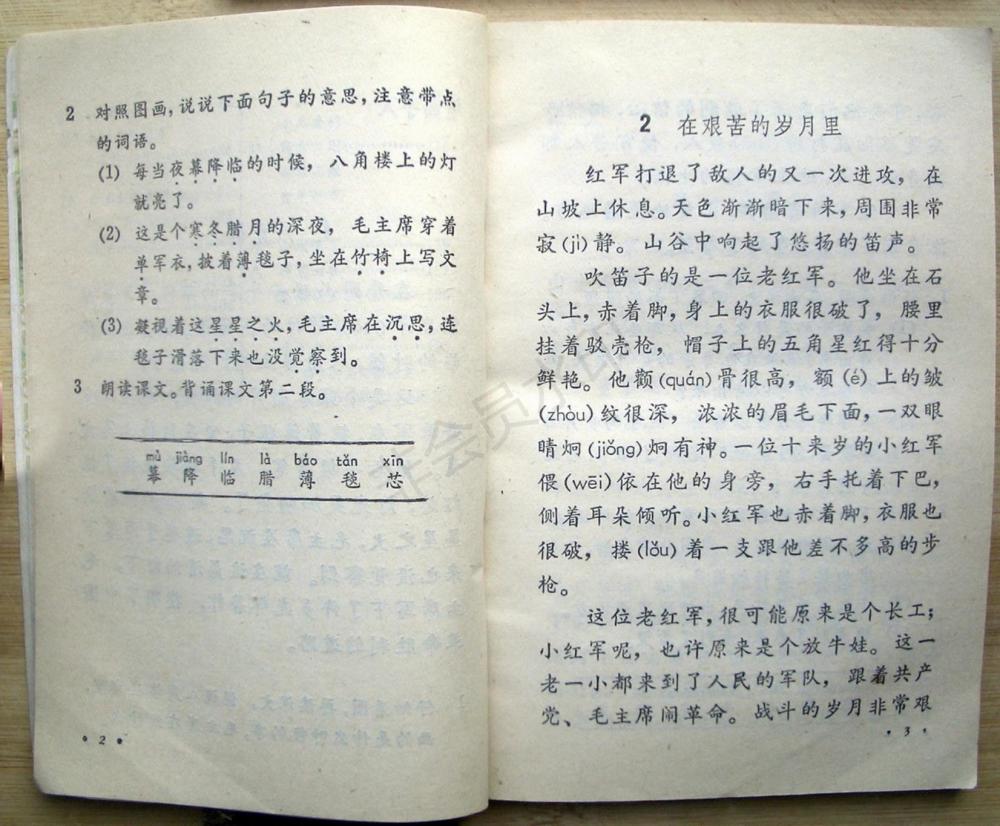 2 对照图画,说说下面句子的意思,注意带点
的词语。
(1) 每当夜幕降临的时候，八角楼上的灯
就亮了。
(2) 这是个寒冬腊月的深夜，毛主席穿着
单军衣,披着薄毯子,坐在竹椅上写文
章。
(3) 凝视着这星星之火,毛主席在沉思,连
毯子滑落下来也没觉察到。
3 朗读课文。背诵课文第二段。
mù jiàng lín là báo tǎn xīn
幕 降 临 腊 薄 毯 芯
• 2 •
2 在艰苦的岁月里
红军打退了敌人的又一次进攻，在
山坡上休息。天色渐渐暗下来,周围非常
寂(jì)静。山谷中响起了悠扬的笛声。
吹笛子的是一位老红军。他坐在石
头上,赤着脚,身上的衣服很破了，腰里
挂着驳壳枪，帽子上的五角星红得十分
鲜艳。他颧(quán)骨很高，额(é)上的皱
(zhòu)纹很深，浓浓的眉毛下面,一双眼
睛炯(jiǒng)炯有神。一位十来岁的小红军
偎(wēi)依在他的身旁，右手托着下巴,
侧着耳朵倾听。小红军也赤着脚,衣服也
很破，搂(lǒu)着一支跟他差不多高的步
枪。
这位老红军,很可能原来是个长工;
小红军呢，也许原来是个放牛娃。这一
老一小都来到了人民的军队，跟着共产
党、毛主席闹革命。战斗的岁月非常艰
• 3 •
非会员水印